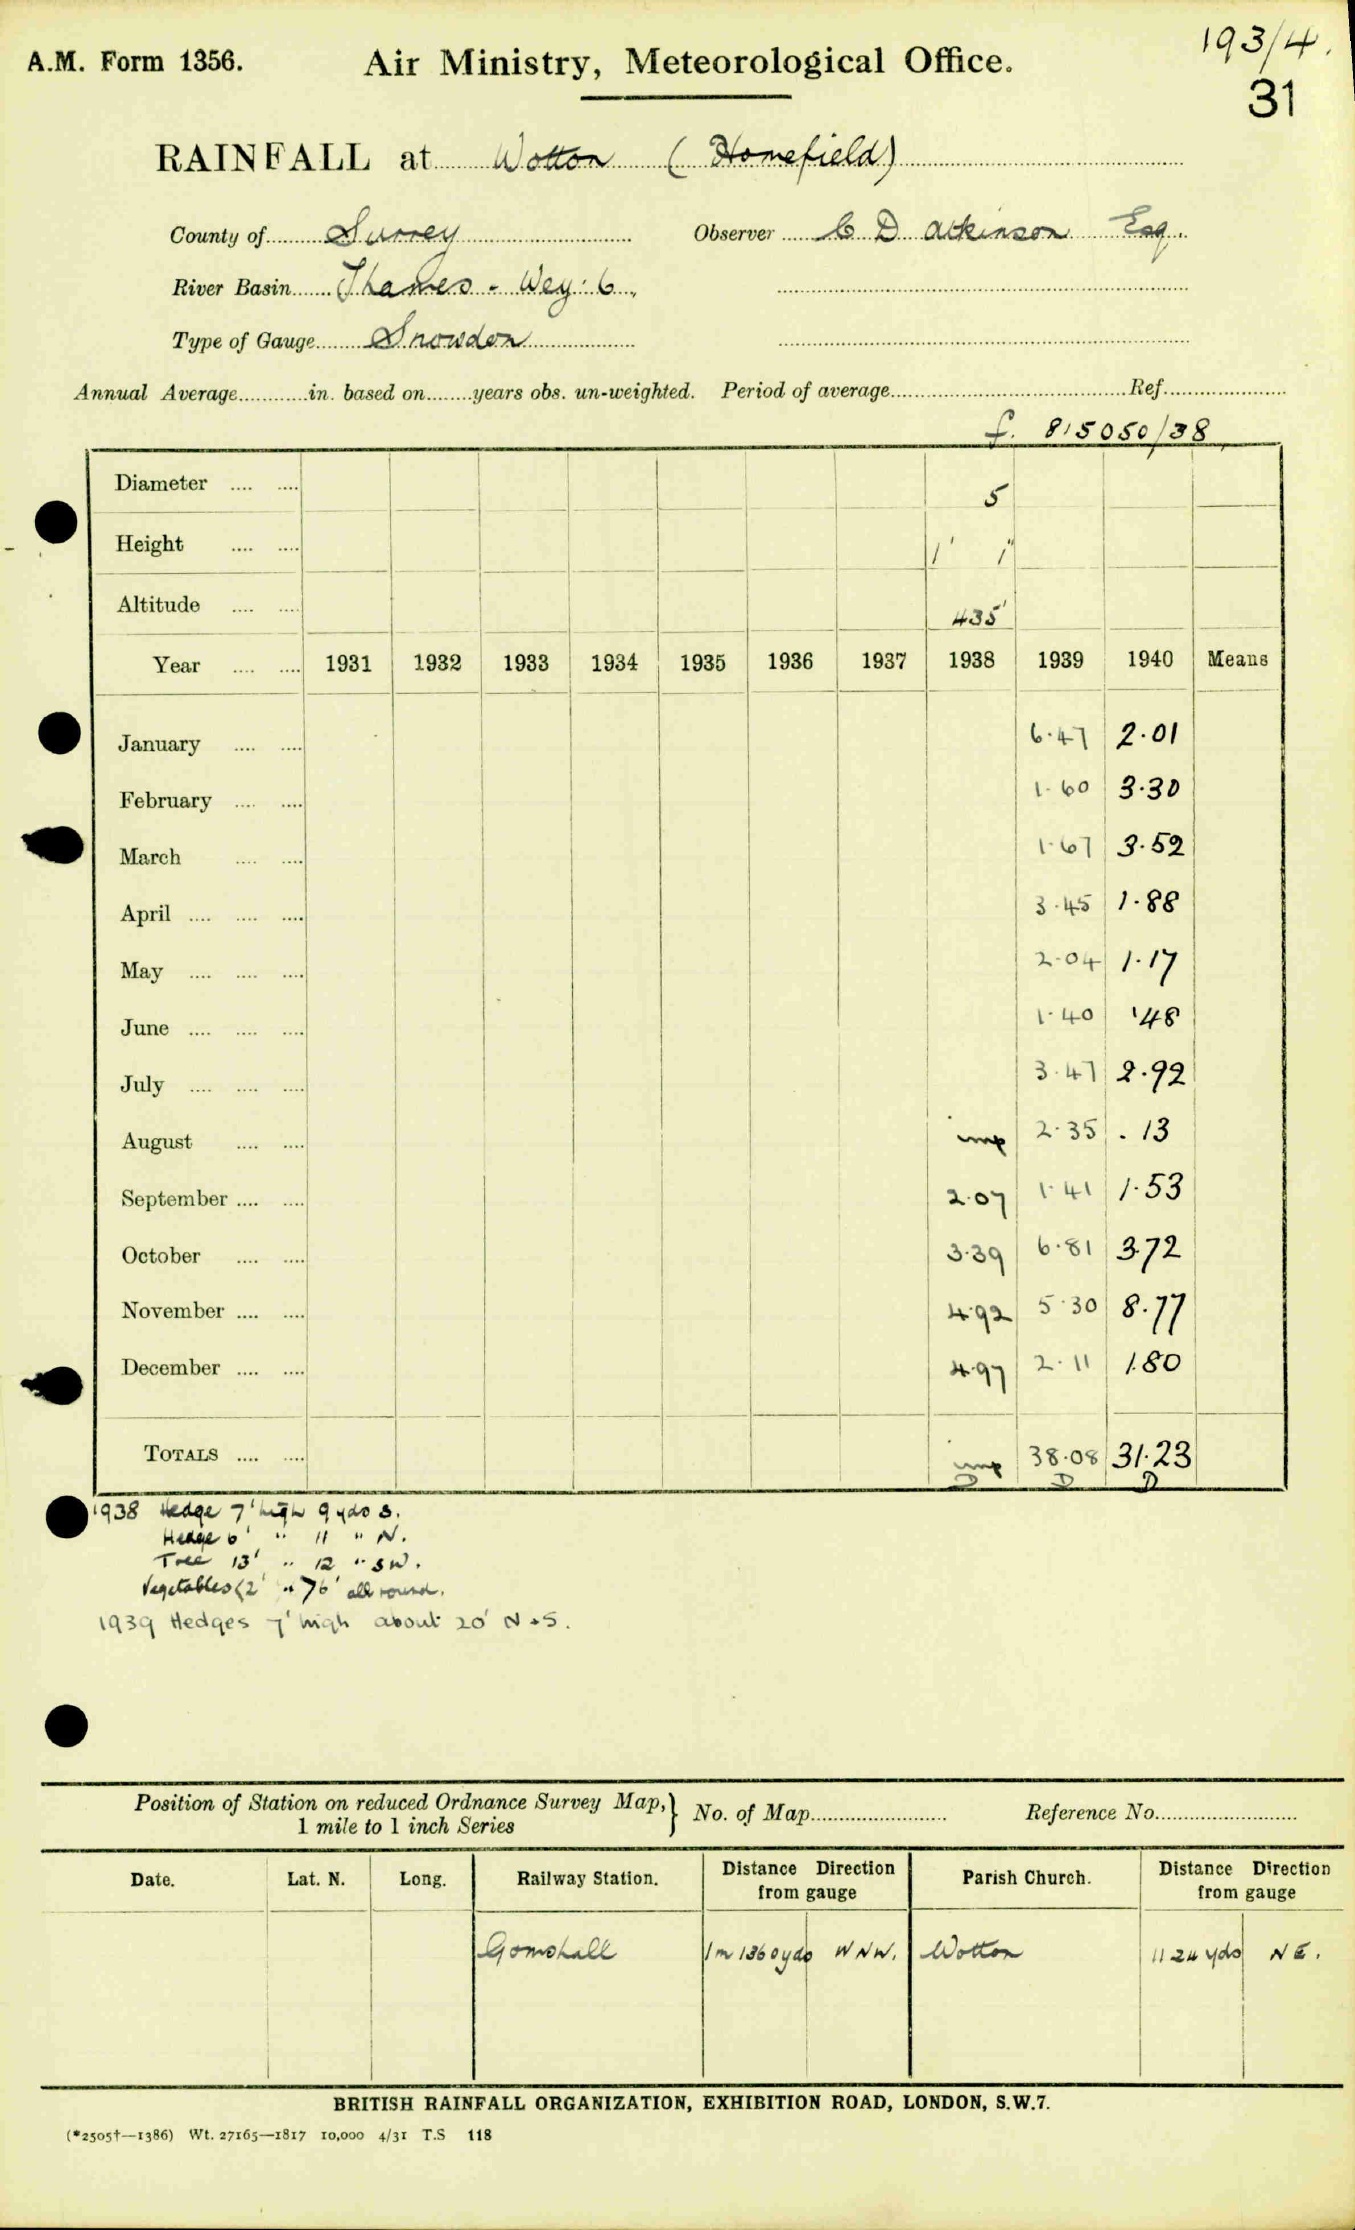 193/4.
A.M. Form 1356. Air Ministry, Meteorological Office.
31
RAINFALL at Wotton (Homefield)
County of Surrey Observer C D Atkinson Esq.
River Basin Thames - Wey: 6
Type of Gauge Snowdon
Annual Average in. based on years obs. un-weighted. Period of average Ref.
f. 815050/38
Diameter 5
Height 1' 1"
Altitude 435'
Year 1931 1932 1933 1934 1935 1936 1937 1938 1939 1940 Means
January 6.47 2.01
February 1.60 3.30
March 1.67 3.52
April 3.45 1.88
May 2.04 1.17
June 1.40 .48
July 3.47 2.92
August imp 2.35 .13
September 2.07 1.41 1.53
October 3.39 6.81 3.72
November 4.92 5.30 8.77
December 4.97 2.11 1.80
TOTALS imp 38.08 31.23
D D D
1938 Hedge 7' high 9 yds S.
Hedge 6' " 11 " N.
Tree 13' " 12 " SW.
Vegetables <2' " >6' all round.
1939 Hedges 7' high about 20' N + S.
Position of Station on reduced Ordnance Survey Map, 1 mile to 1 inch Series } No. of Map Reference No.
Date. Lat. N. Long. Railway Station. Distance Direction from gauge Parish Church. Distance Direction from gauge
Gomshall 1m 1360yds WNW. Wotton 1124 yds NE.
BRITISH RAINFALL ORGANIZATION, EXHIBITION ROAD, LONDON, S.W.7.
(*2505†—1386) Wt. 27165—1817 10,000 4/31 T.S 118